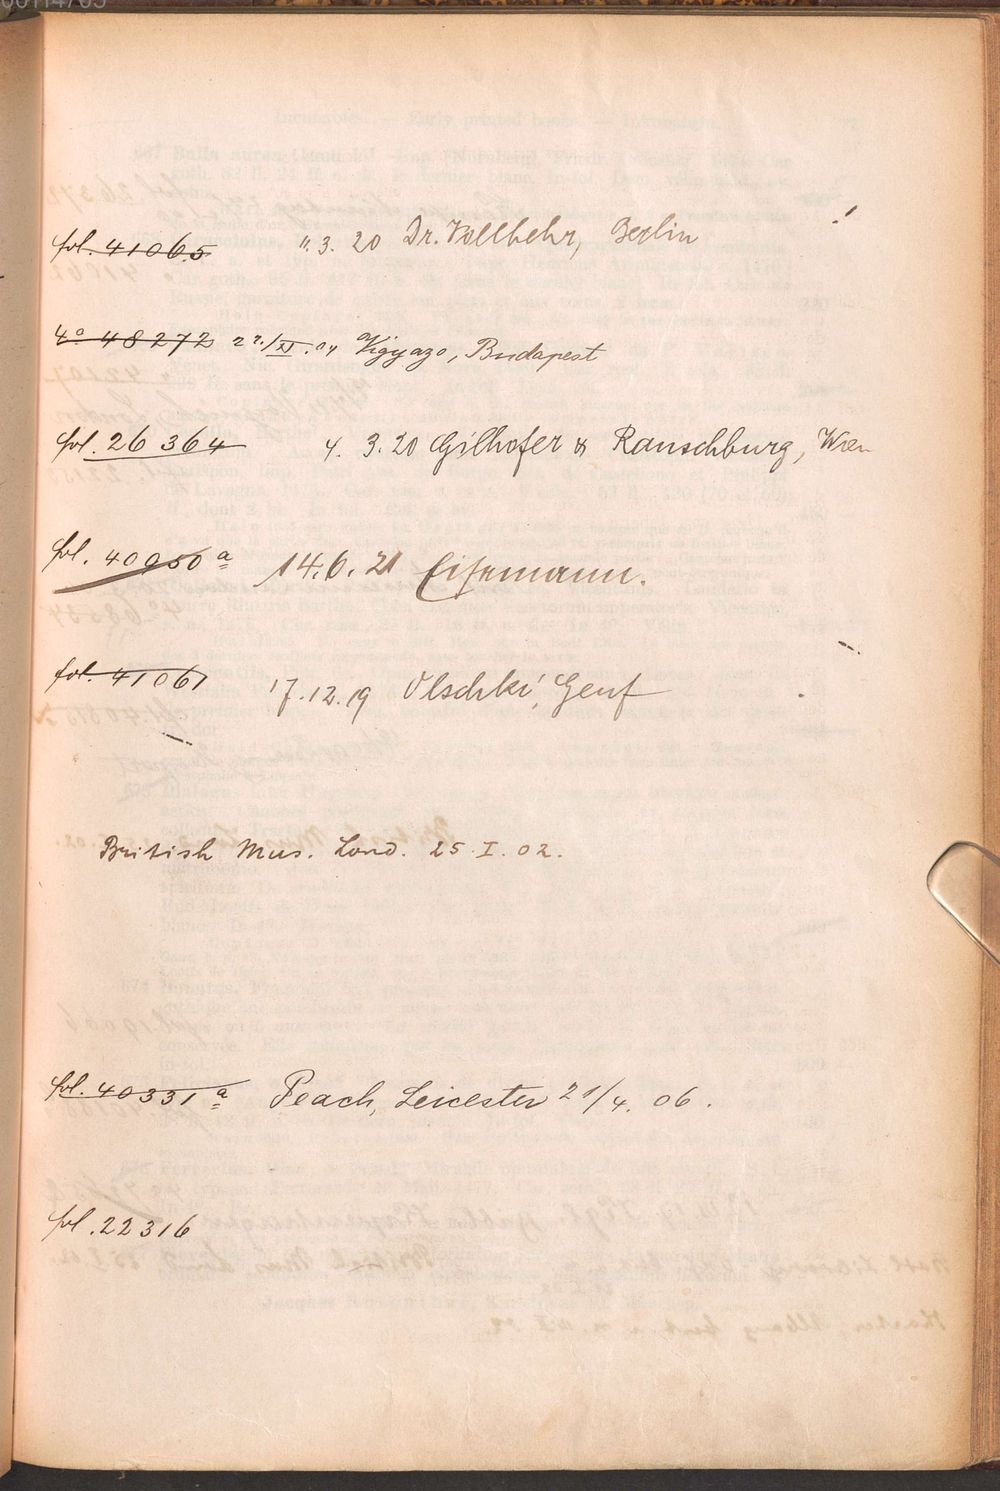 fol. 41065 11.3.20 Dr. Vollbehr, Berlin
4° 48272 22/XI.04 Vigyazo, Budapest
fol. 26364 4. 3.20 Gilhofer & Ranschburg, Wien
fol. 40050 a 14.6.21 Eisemann.
fol. 41061 17.12.19 Olschki, Genf
British Mus. Lond. 25.I.02.
fol. 40331 a Peach, Leicester 21/4.06.
fol. 22316